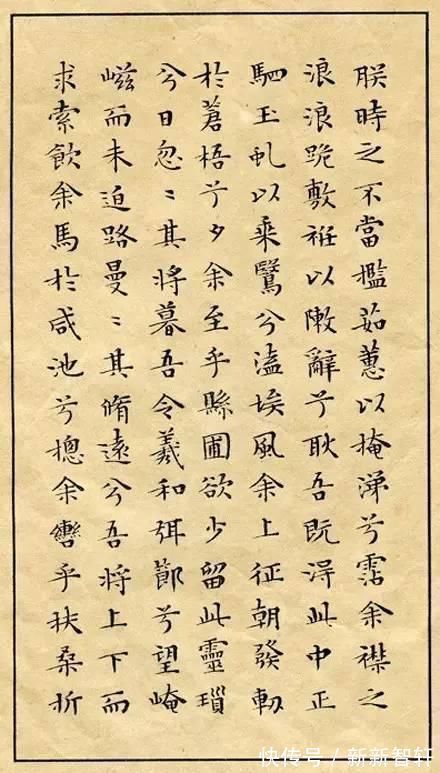 朕時之不當攬茹蕙以掩涕兮霑余襟之
浪浪跪敷衽以陳辭兮耿吾既淂此中正
駟玉虬以乘鷖兮溘埃風余上征朝發軔
於蒼梧兮夕余至乎縣圃欲少留此靈瑣
兮日忽〻其將暮吾令羲和弭節兮望崦
嵫而未迫路曼〻其脩遠兮吾將上下而
求索飲余馬於咸池兮摠余轡乎扶桑折
快传号 / 新新智轩